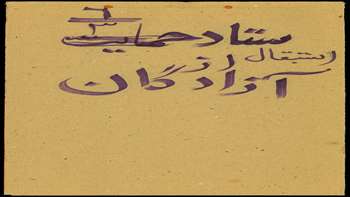 ستاد حمایت
استقبال از
آزادگان